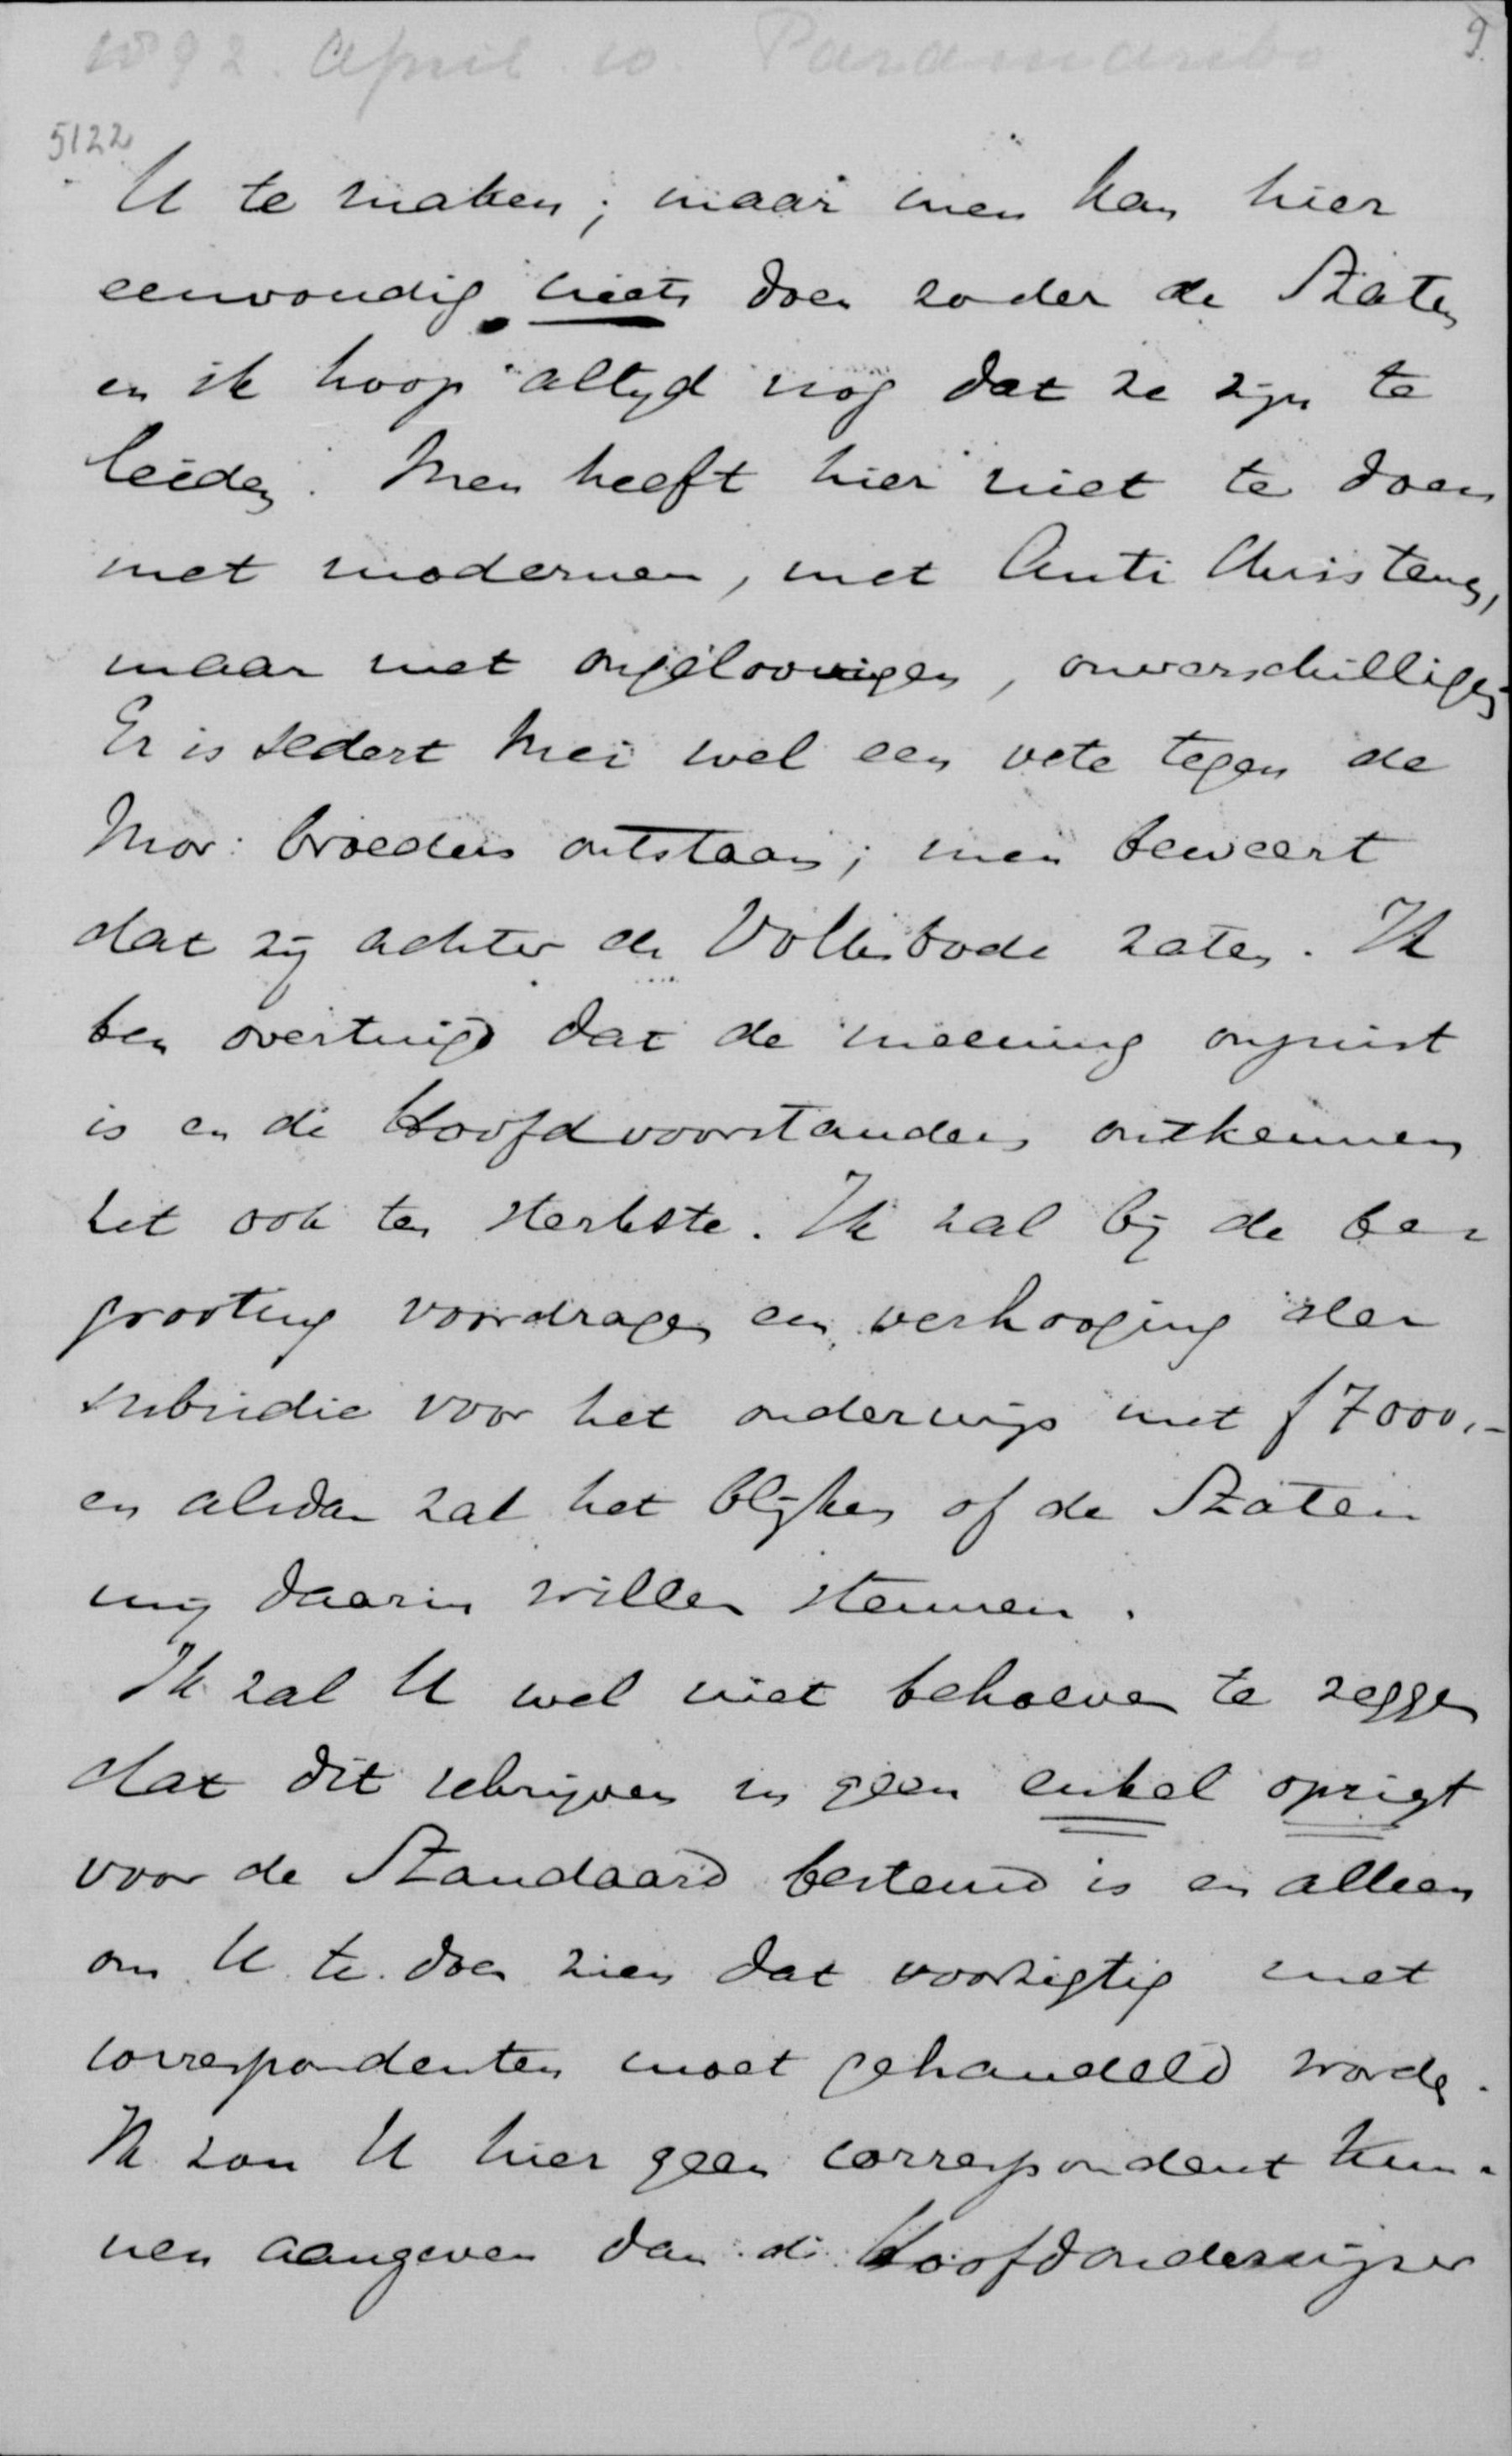 1892. April 10. Paramaribo
9.
5122
U te maken; maar men kan hier
eenvoudig niets doen zonder de Staten
en ik hoop altyd nog dat ze zijn te
leiden. Men heeft hier niet te doen
met modernen, met Anti Christens,
maar met ongeloovigen, onverschilligen
Er is sedert Mei wel een vete tegen de
Mor: broeders ontstaan; men beweert
dat zij achter de Volksbode zaten. Ik
ben overtuigd dat de meening onjuist
is en de Hoofdvoorstanders ontkennen
het ook ten sterkste. Ik zal bij de be=
grooting voordragen een verhooging der
subsidie voor het onderwijs met f 7000,-
en alsdan zal het blijken of de Staten
mij daarin willen steunen.
Ik zal U wel niet behoeven te zeggen
dat dit schrijven in geen enkel opzigt
voor de Standaard bestemd is en alleen
om U te doen zien dat voorzigtig met
correspondenten moet gehandeld worden.
Ik zou U hier geen correspondent kun=
nen aangeven dan de Hoofdonderwijzer